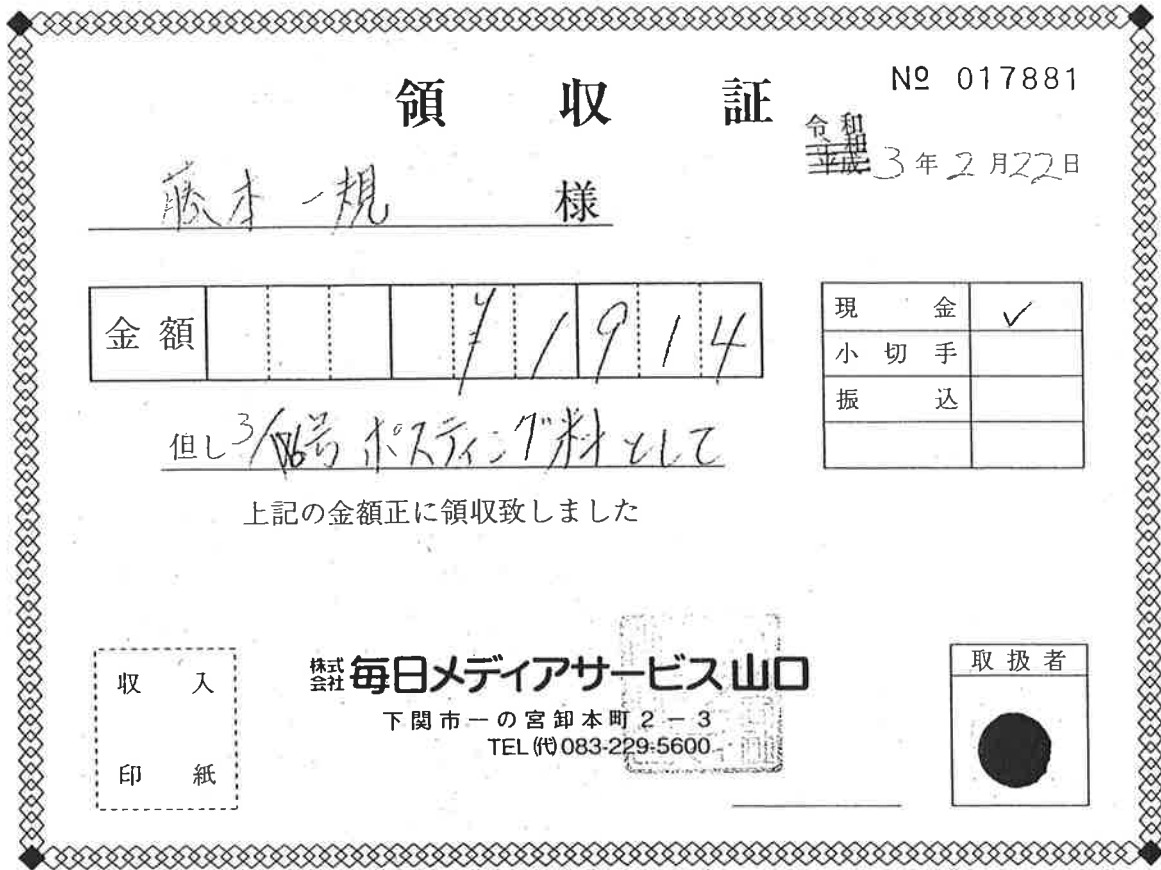 領収証
№ 017881
令和
平成 3年2月22日
藤本一規 様
金額 ¥1914
現金 ✓
小切手
振込
但し 3/ 号 ポスティング料として
上記の金額正に領収致しました
収入
印紙
株式会社 毎日メディアサービス山口
下関市一の宮卸本町2-3
TEL(代)083-229-5600
取扱者